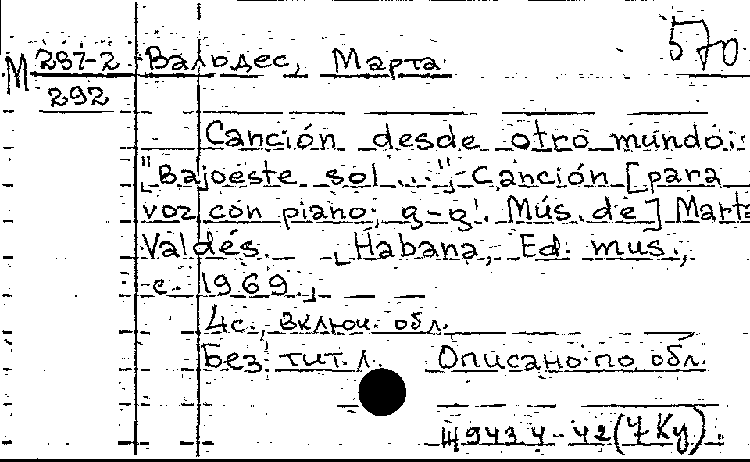 570
М 287-2 Вальдес, Марта
292
Canción desde otro mundo:
["Bajoeste sol ..."] Canción [para
voz con piano; g-g'. Mús. de] Marta
Valdés. [Habana, Ed. mus.,
c. 1969.]
4с., включ. обл.
Без тит. л. Описано по обл.
Ш 943 4-42 (7 Ку).